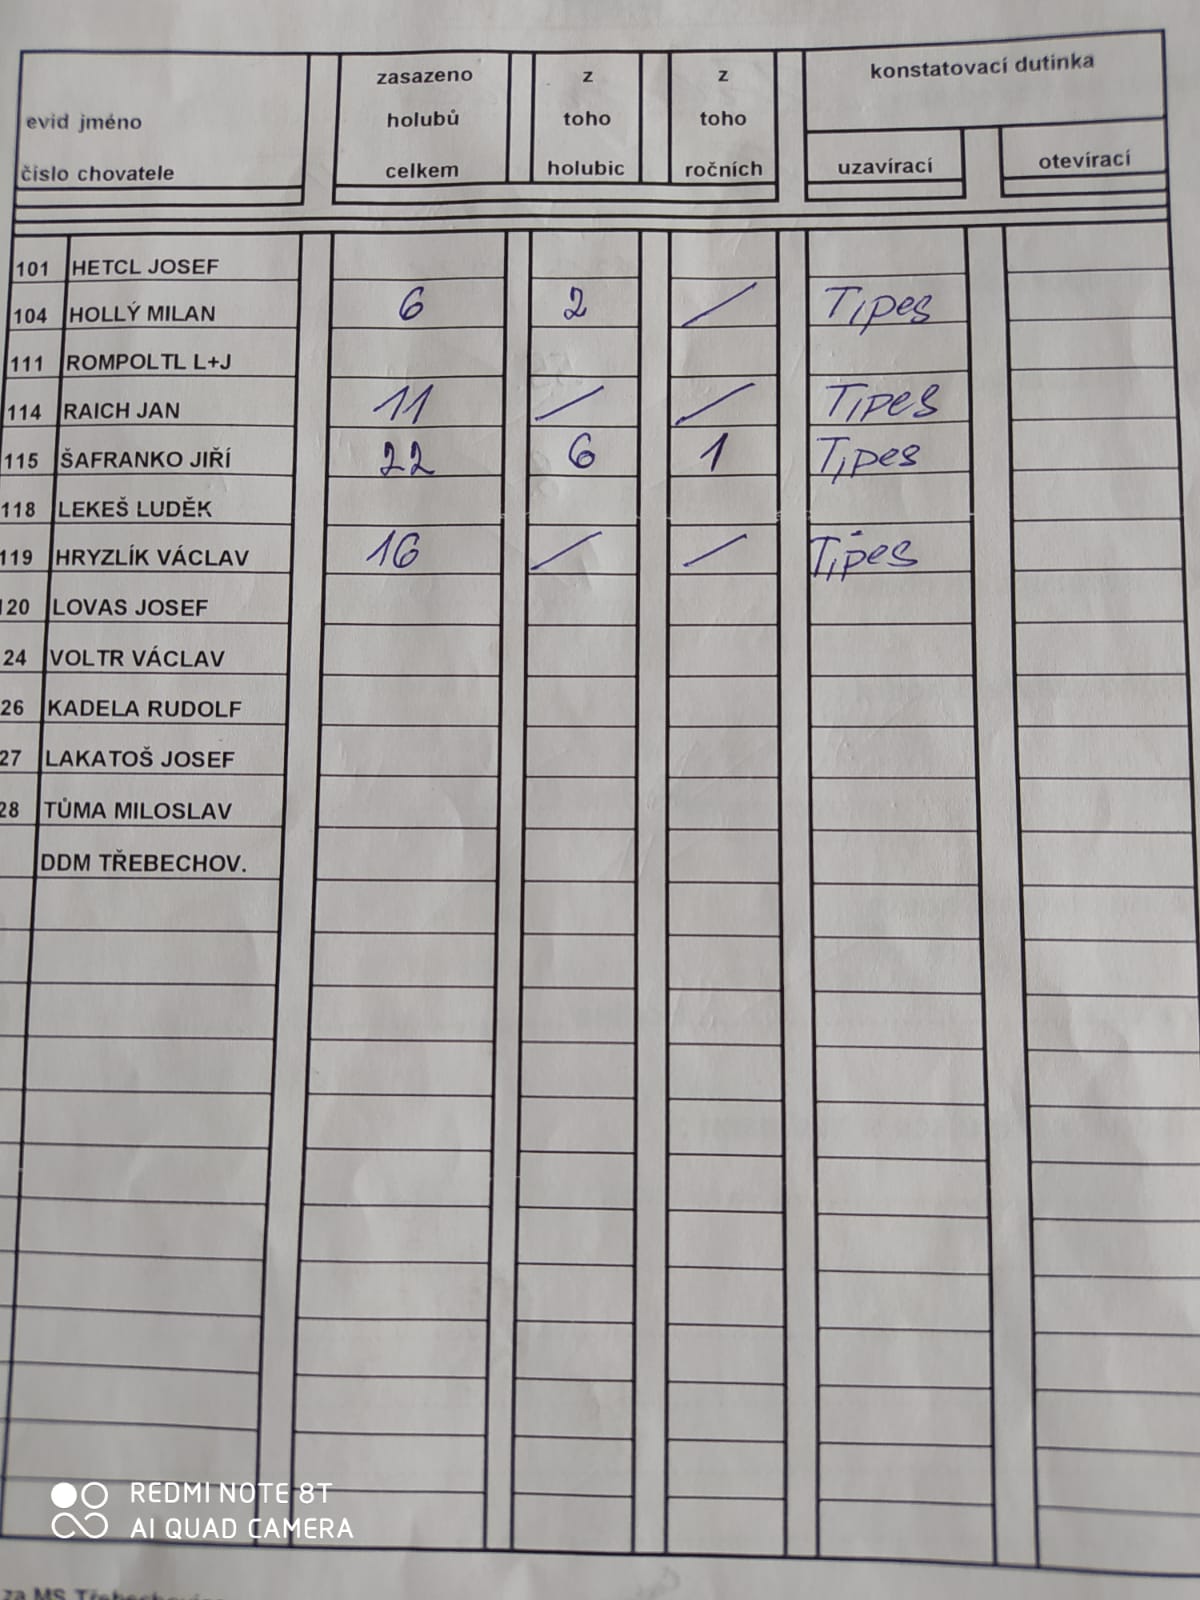 evid jméno
číslo chovatele
zasazeno
holubů
celkem
z
toho
holubic
z
toho
ročních
konstatovací dutinka
uzavírací
otevírací
101 HETCL JOSEF
104 HOLLÝ MILAN 6 2 / Tipes
111 ROMPOLTL L+J
114 RAICH JAN 11 / / Tipes
115 ŠAFRANKO JIŘÍ 22 6 1 Tipes
118 LEKEŠ LUDĚK
119 HRYZLÍK VÁCLAV 16 / / Tipes
120 LOVAS JOSEF
24 VOLTR VÁCLAV
26 KADELA RUDOLF
27 LAKATOŠ JOSEF
28 TŮMA MILOSLAV
DDM TŘEBECHOV.
REDMI NOTE 8T
AI QUAD CAMERA
za MS